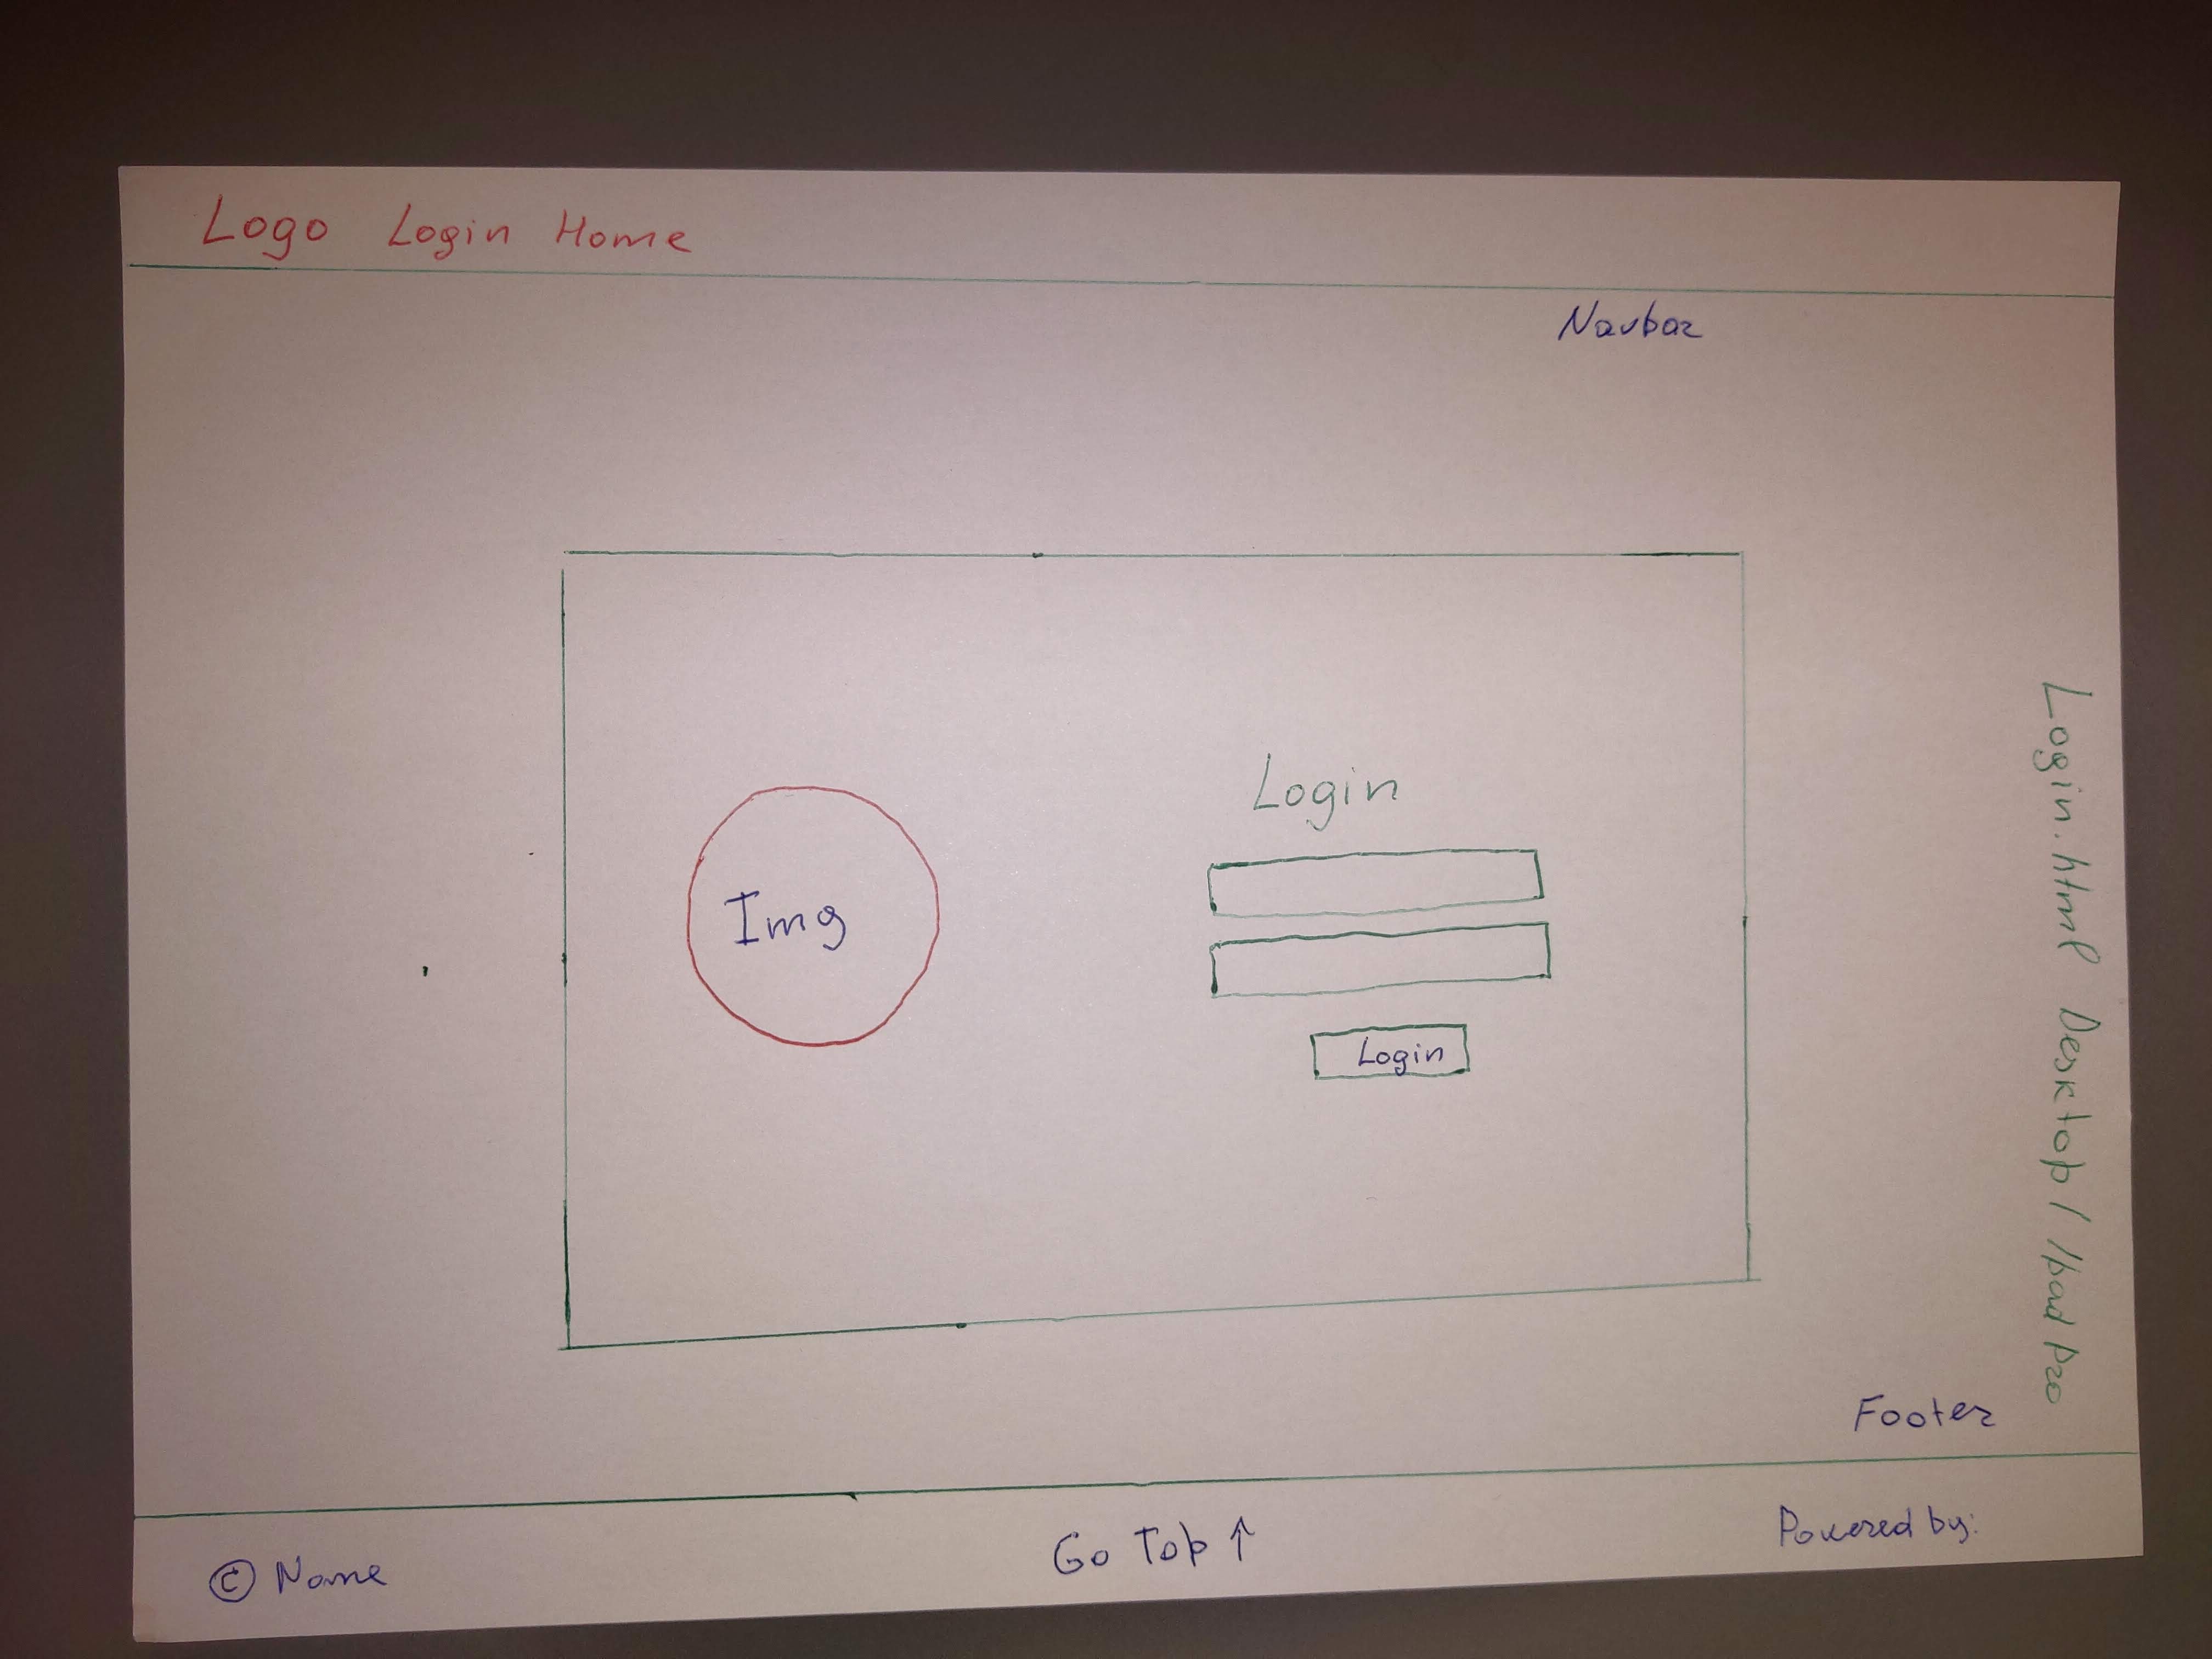 Logo Login Home
Navbar
Login
Img
Login
Login.html Desktop / Ipad Pro
Footer
© Name
Go Top ↑
Powered by: